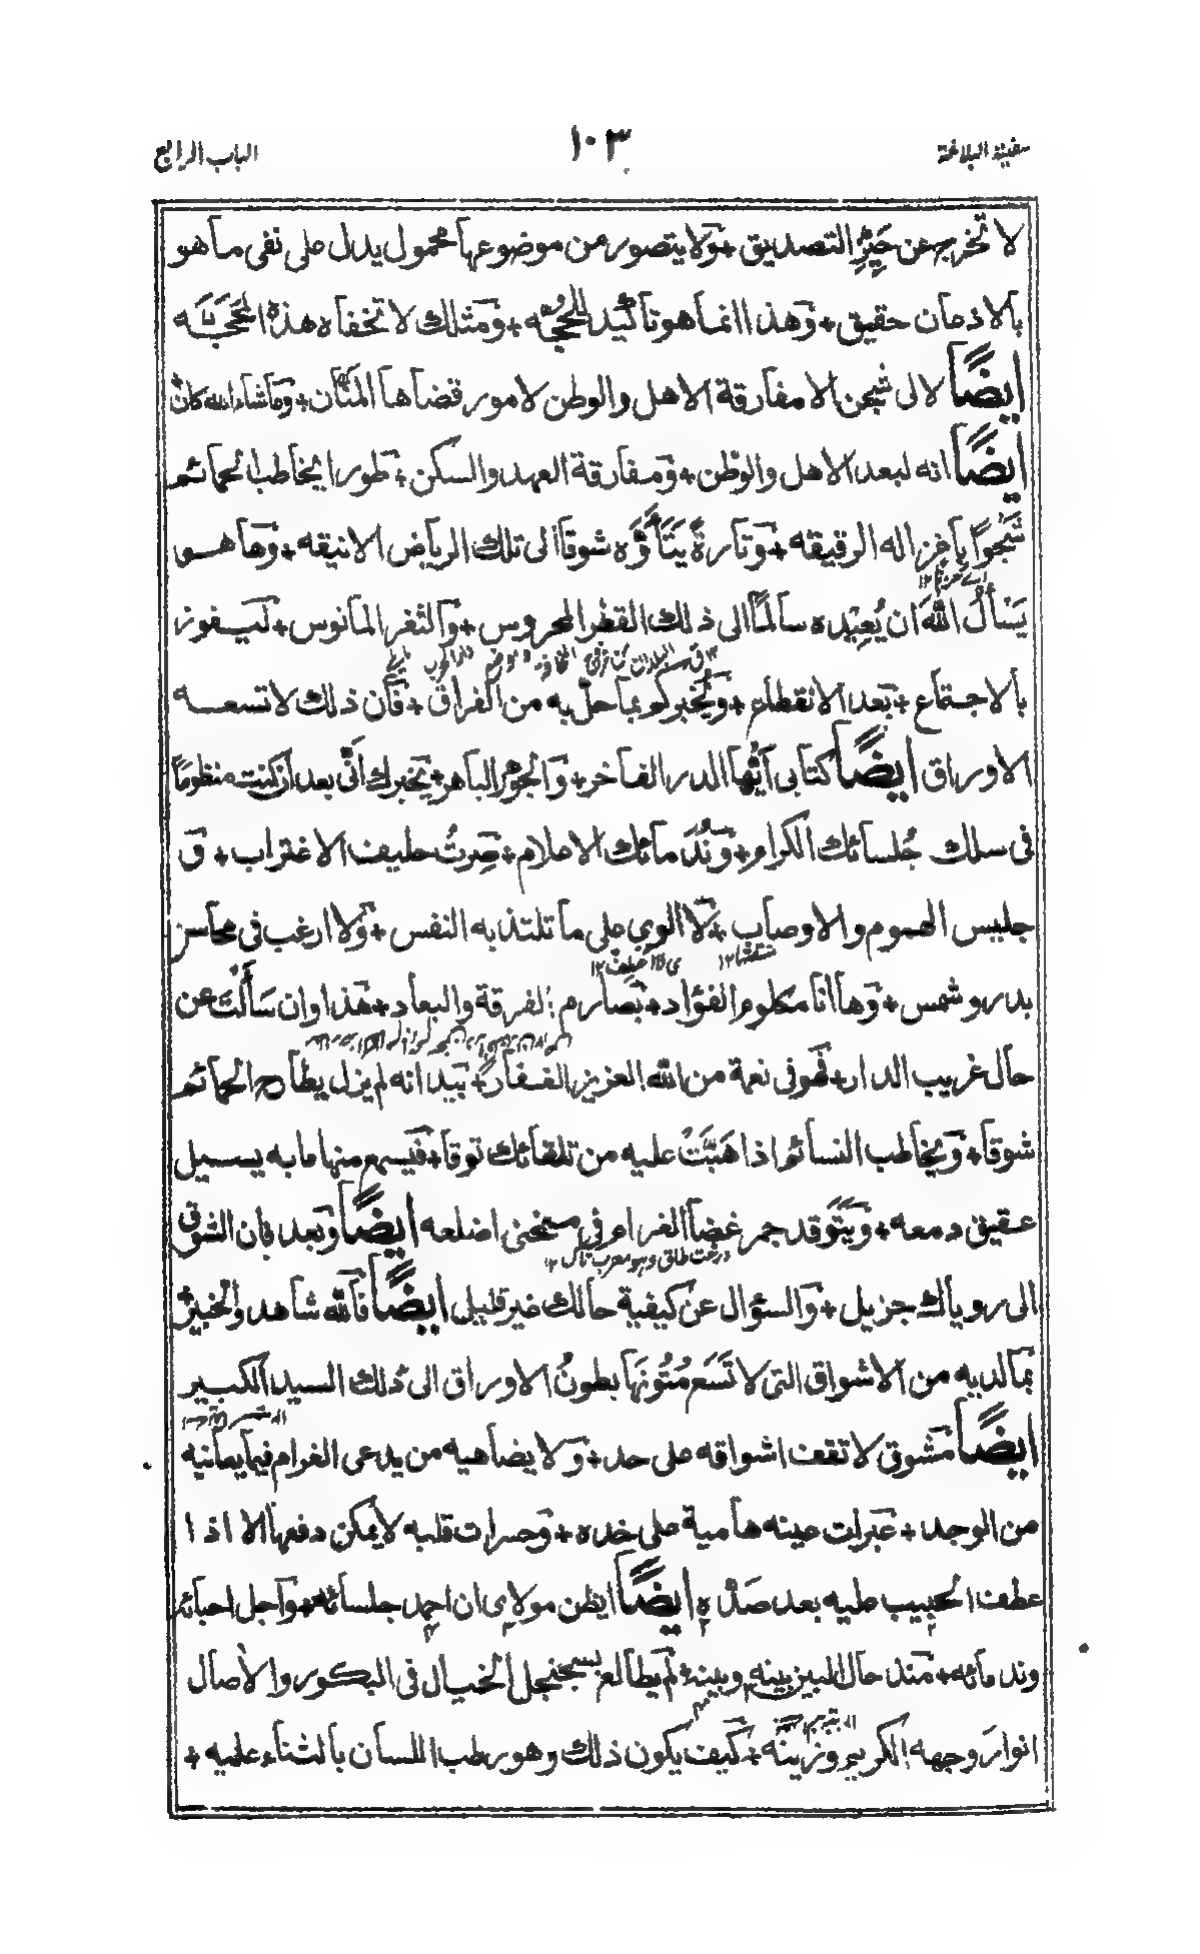 سفينة البلاغة
١٠٣
الباب الرابع
لا تخرج عن حَيِّزِ التصديق + وَلا يتصور من موضوعها محمول يدل على نفى ما هو
بالاذعان حقيق + وَهذا انما هو تأكيد للحُجَّه + وَمثلك لا تخفاه هذه المَحَجَّه
ايضًا لا لى شجن الا مفارقة الاهل والوطن لامور قضاها المنّان + وَما شاء الله كان
ايضًا انه لبعد الاهل والوطن + وَمفارقة العهد والسكن + طورا يخاطب الحمائم
شَجْوًا بأغزاله الرقيقه + وَتارةً يَتَأَوَّه شوقا الى تلك الرياض الانيقه + وَها هو
يَسْأَلُ اللهَ ان يُعِيْدَه سالماً الى ذلك القطر المحروس + وَالثغر المأنوس + ليفوز
بالاجتماع + بَعد الانقطاع + وَيُخبركم بما حلّ به من الفراق + فَان ذلك لا تسعه
الاوراق ايضًا كتابى ايّها الدر الفاخر + وَالجوهر الباهر + يخبرك أنّى بعد ان كنت منظوماً
فى سلك جُلسائك الكرام + وَنُدَمائك الاعلام + صِرتُ حليف الاغتراب + وَ
جليس الهموم والاوصاب + لَا الوى على ما تلتذ به النفس + وَلا ارغب فى محاسن
بدر و شمس + وَها انا مكلوم الفؤاد + بَصارم الفرقة والبعاد + هَذا وان سَأَلْتَ عن
حال غريب الدار + فَهو فى نعمة من الله العزيز الغفار + بَيد انه لم يزل يطارح الحمائم
شوقا + وَيخاطب النسائم اذا هَبَّتْ عليه من تلقائك توقا + فَيسمع منها ما به يسيل
عقيق دمعه + وَيَتَوقد جمر غضا الغرام فى منحنى اضلعه ايضًا وبعد فان الشوق
الى روياك جزيل + وَالسؤال عن كيفية حالك غير قليل ايضًا فالله شاهد والخبيرُ
بما لديه من الاشواق التى لا تَسَع مُتُونَها بطونُ الاوراق الى ذلك السيد الكبير
ايضًا مشوق لا تقف اشواقه على حد + وَلا يضاهيه من يدعى الغرام فيما يعانيه
من الوجد + عَبرات عينه هامية على خده + وَحسرات قلبه لا يمكن دفعها الا اذا
عطف الحبيب عليه بعد صَدِّه ايضًا ايظن مولاى ان احمد جلسائه + وَاجل احبائه
وندمائه + مَنذ حال البين بينه وبينه + لم يطالع بسجنجل الخيال فى البكور والآصال
انوارَ وجهه الكريم وزينه + كَيف يكون ذلك وهو رطب اللسان بالثناء عليه +